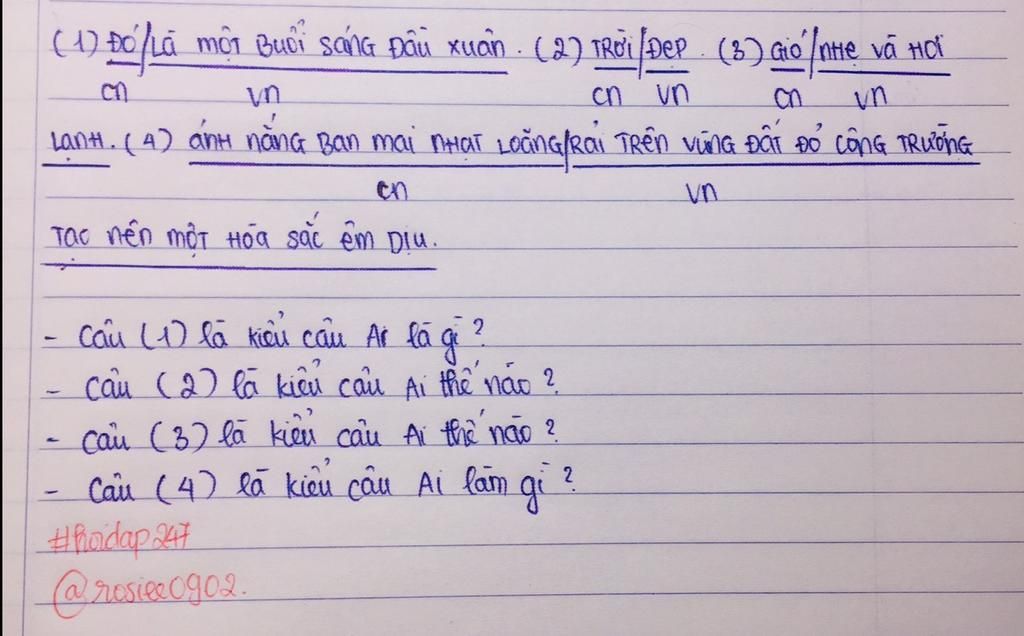 (1) ĐÓ/LÀ MỘT BUỔI SÁNG ĐẦU XUÂN. (2) TRỜI/ĐẸP. (3) GIÓ/NHẸ VÀ HƠI
CN VN CN VN CN VN
LẠNH. (4) ÁNH NẮNG BAN MAI NHẠT LOÃNG/RẢI TRÊN VÙNG ĐẤT ĐỎ CÔNG TRƯỜNG
CN VN
TẠO NÊN MỘT HÒA SẮC ÊM DỊU.
- Câu (1) là kiểu câu Ai là gì?
- Câu (2) là kiểu câu Ai thế nào?
- Câu (3) là kiểu câu Ai thế nào?
- Câu (4) là kiểu câu Ai làm gì?
#hoidap247
@rosiee0902.